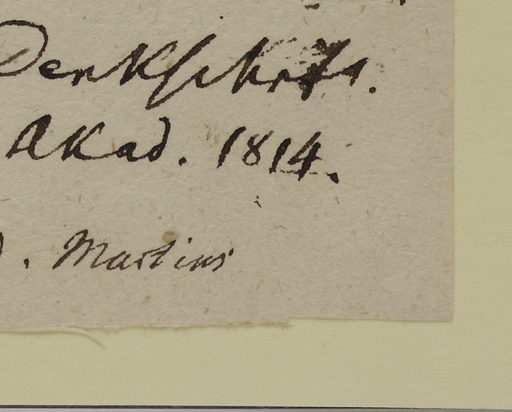 Denkschrft.
Akad. 1814.
. Martius